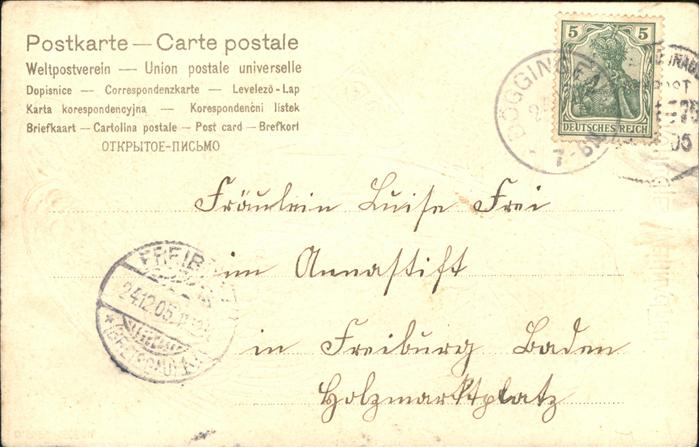 Postkarte — Carte postale
Weltpostverein — Union postale universelle
Dopisnice — Correspondenzkarte — Levelező-Lap
Karta korespondencyjna — Korespondenční lístek
Briefkaart — Cartolina postale — Post card — Brefkort
ОТКРЫТОЕ-ПИСЬМО
5 5
DEUTSCHES REICH
DÖGGINGEN
7-8N
05
Fräulein Luise Frei
im Annastift
in Freiburg Baden
Holzmarktplatz
FREIB
24.12.05
(BREISGAU)